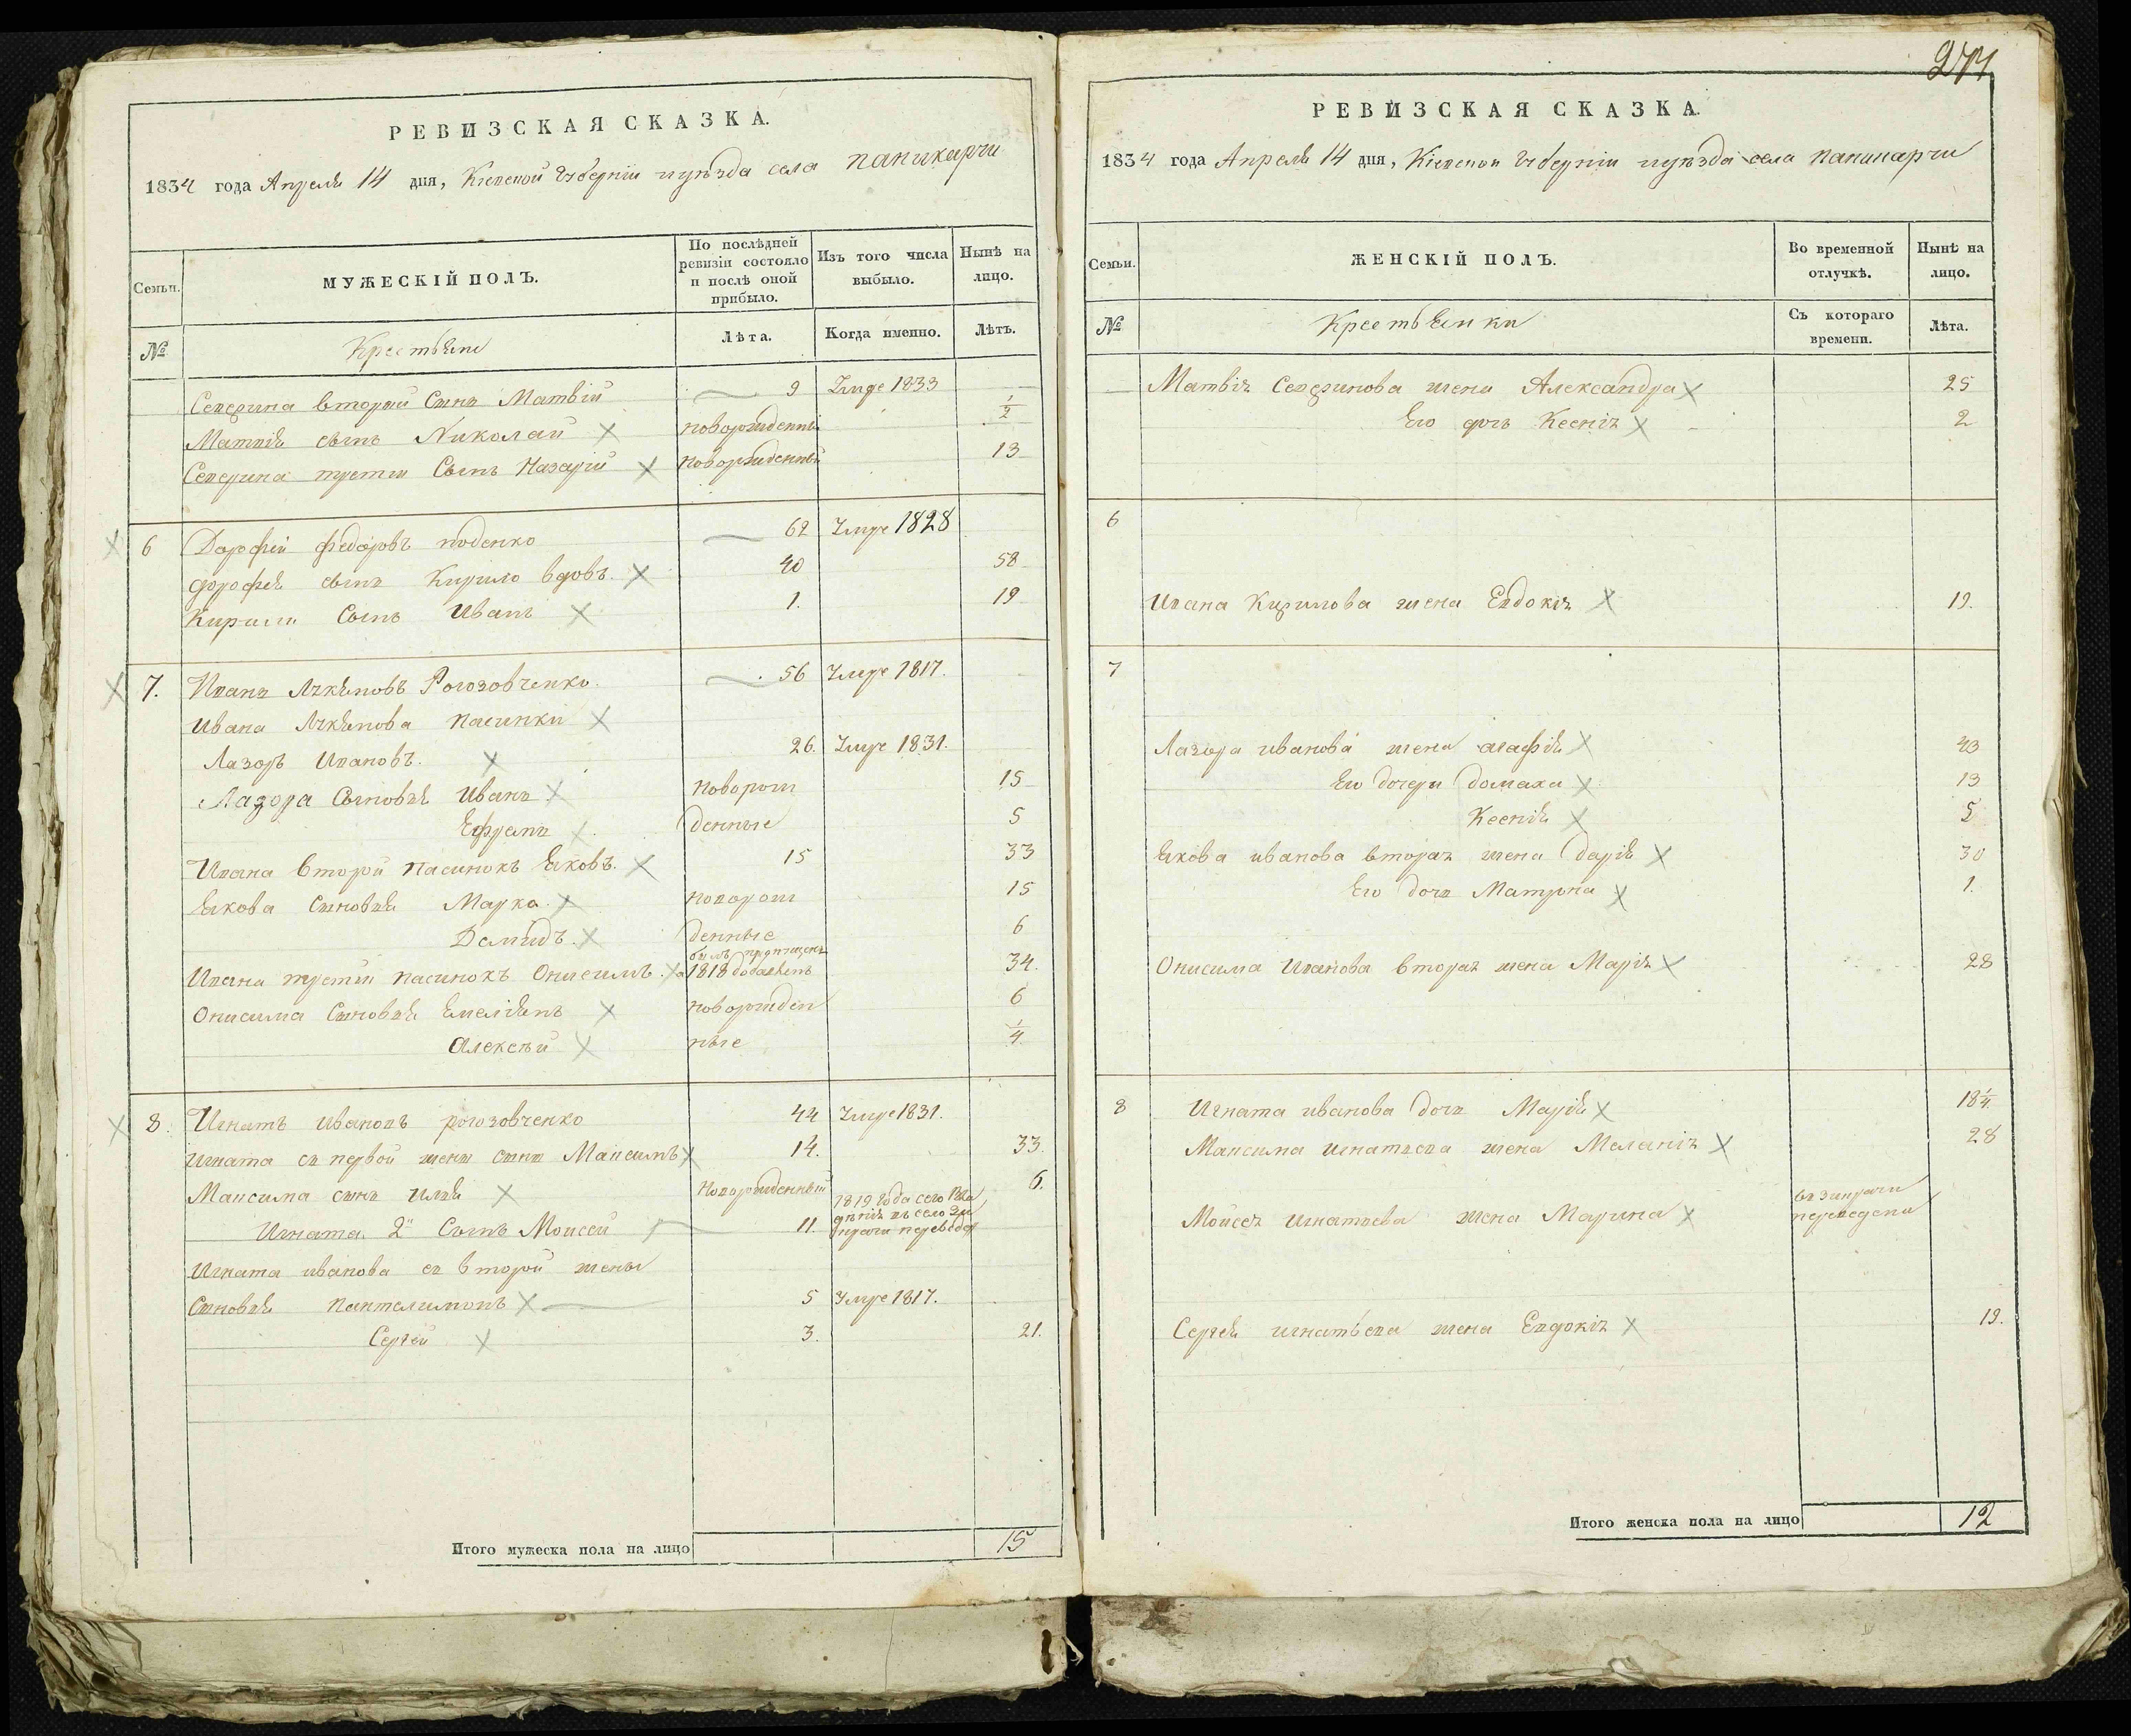 274
РЕВИЗСКАЯ СКАЗКА.
1834 года Апреля 14 дня, Кіевской Губерніи и уѣзда села Паникарчи
Семьи.
МУЖЕСКІЙ ПОЛЪ.
По послѣдней ревизіи состояло и послѣ оной прибыло.
Изъ того числа выбыло.
Нынѣ на лицо.
№
Крестьяне
Лѣта.
Когда именно.
Лѣтъ.
Северина вторый Сынъ Матвій 9 Умре 1833
Матвія сынъ Николай новорожденный 1/2
Северина третій Сынъ Назарій новорожденный 13
6 Дорофей Федоровъ 62 Умре 1828
Дорофея сынъ Кирило вдовъ. 40 58
Кирили Сынъ Иванъ 1. 19
7. Иванъ Лукяновъ Рогозовченко. 56 Умре 1817.
Ивана Лукянова пасинки
Лазоръ Ивановъ. 26. Умре 1831.
Лазора Сыновья Иванъ новорож 15
Ефремъ денные 5
Ивана вторый пасинокъ Яковъ. 15 33
Якова сыновья Марко. новорож 15
Демидъ. денные 6
Ивана третій пасинокъ Онисимъ. былъ пропущенъ 1818 добавленъ 34.
Онисима Сыновья Емеліянъ новорожден 6
Алексѣй ные 1/4.
8. Игнатъ Ивановъ рогозовченко 44 Умре 1831.
Игната съ первой жены сынъ Максимъ 14. 33.
Максима сынъ Илья Новорожденный 6.
Игната 2й Сынъ Моисей 11. 1819 года сего
въ село переведен
Игната иванова съ второй жены
Сыновья Панталимонъ 5 Умре 1817.
Сергей 3. 21.
Итого мужеска пола на лицо 15
РЕВИЗСКАЯ СКАЗКА.
1834 года Апреля 14 дня, Кіевской Губерніи и уѣзда села Паникарчи
Семьи.
ЖЕНСКІЙ ПОЛЪ.
Во временной отлучкѣ.
Нынѣ на лицо.
№
Крестьянки
Съ котораго времени.
Лѣта.
Матвія Северинова жена Александра 25
Его дочь Ксенія 2
6
Ивана Кирилова жена Евдокія 19.
7
Лазора иванова жена агафія 43
Его дочери Домаха 13
Ксенія 5
Якова иванова вторая жена Дарія 30
Его дочь Матрона 1.
Онисима Иванова вторая жена Марія 28
8 Игната иванова дочь Марія 18 1/4.
Максима игнатьева жена Меланія 28
Моисея Игнатьева жена Марина переведена
Сергея игнатьева жена Евдокія 19.
Итого женска пола на лицо 12